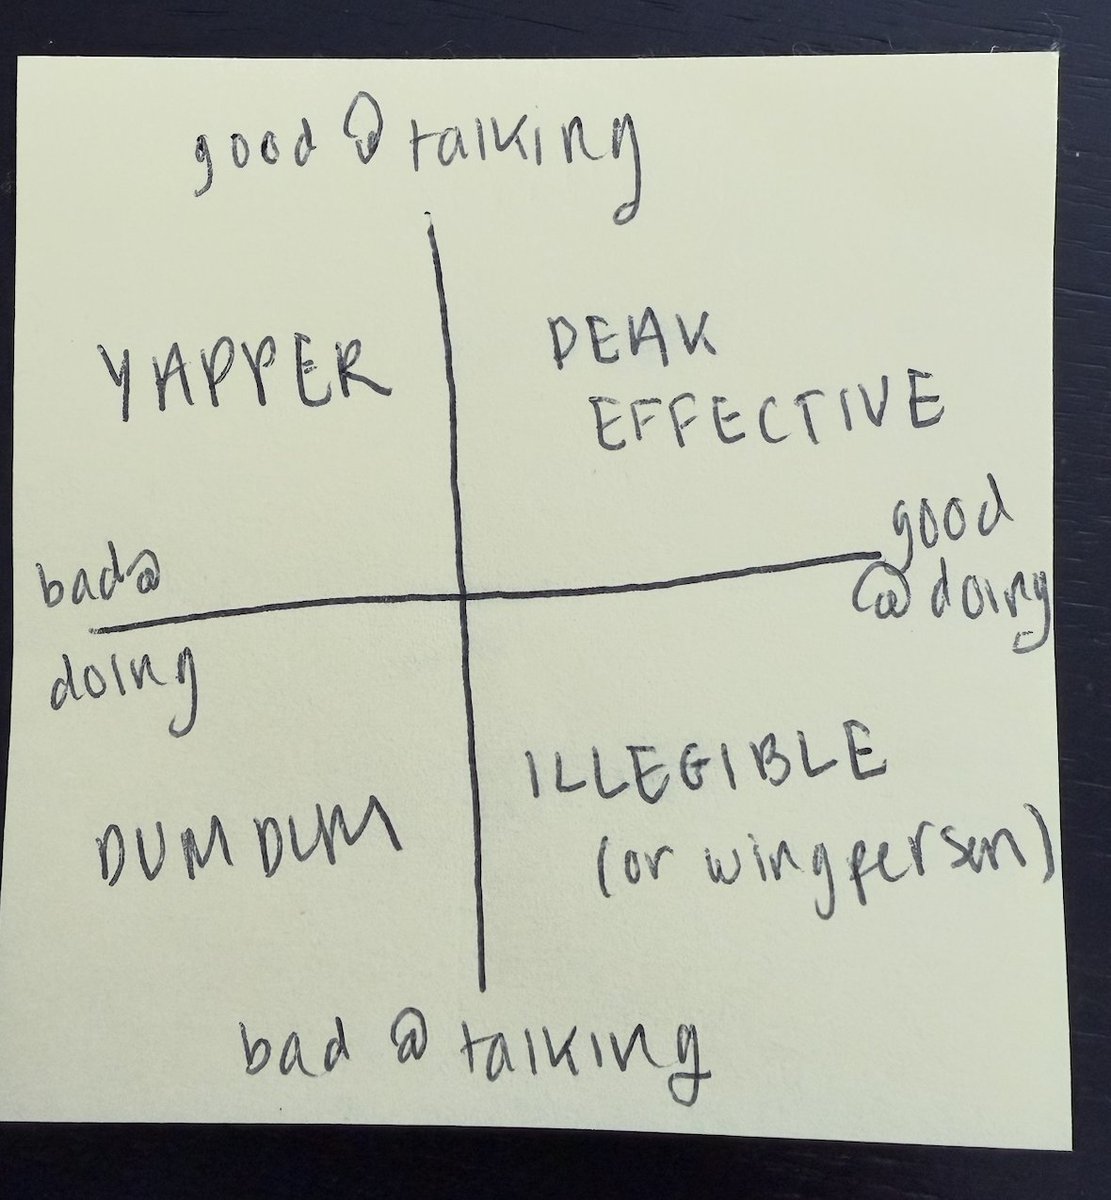 good @ talking
YAPPER
PEAK
EFFECTIVE
bad@
doing
good
@ doing
DUM DUM
ILLEGIBLE
(or wingperson)
bad @ talking